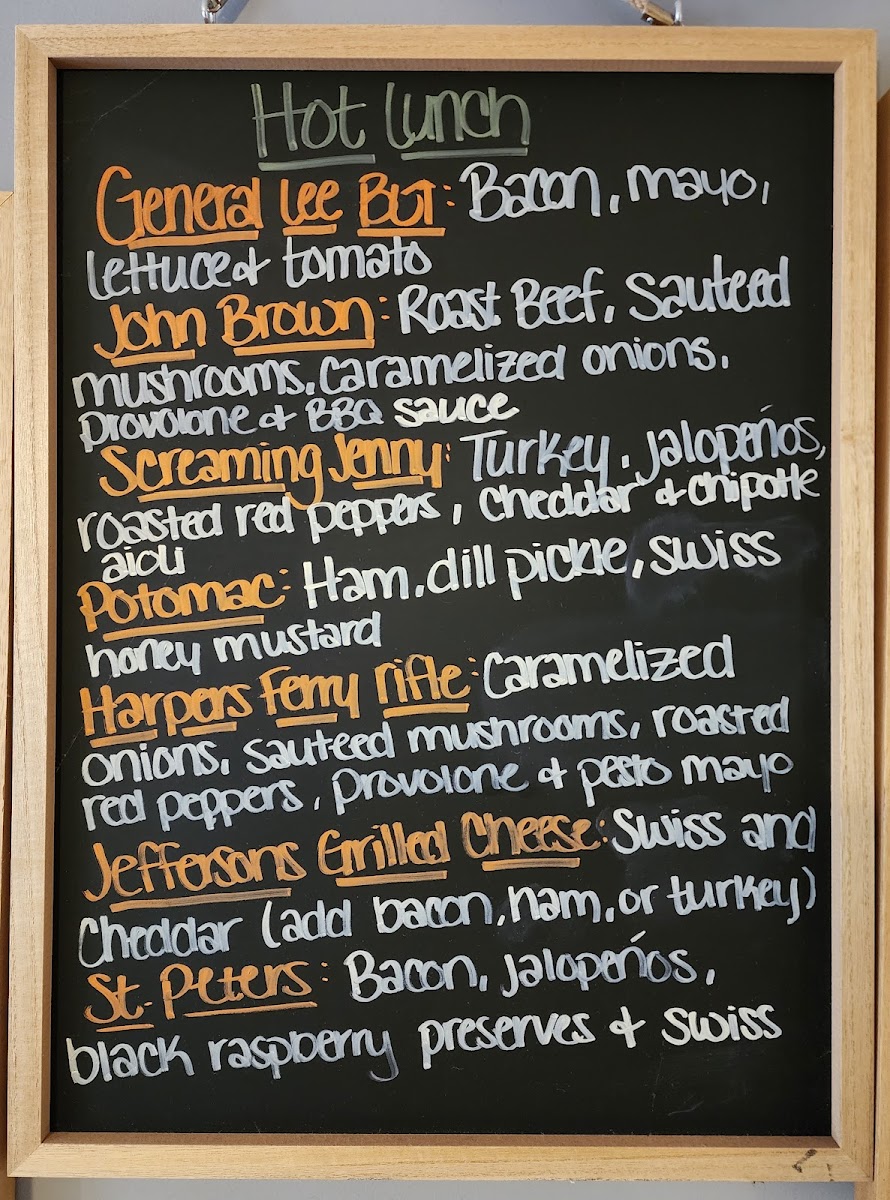 Hot Lunch
General Lee BLT: Bacon, mayo,
lettuce & tomato
John Brown: Roast Beef, Sauteed
mushrooms, Caramelized onions,
Provolone & BBQ sauce
Screaming Jenny: Turkey, jalopeños,
roasted red peppers, Cheddar & chipotle
aioli
Potomac: Ham, dill pickle, swiss
honey mustard
Harpers Ferry rifle: Caramelized
onions, sauteed mushrooms, roasted
red peppers, Provolone & pesto mayo
Jeffersons Grilled Cheese: Swiss and
Cheddar (add bacon, ham, or turkey)
St. Peters: Bacon, Jalopeños,
black raspberry preserves & swiss